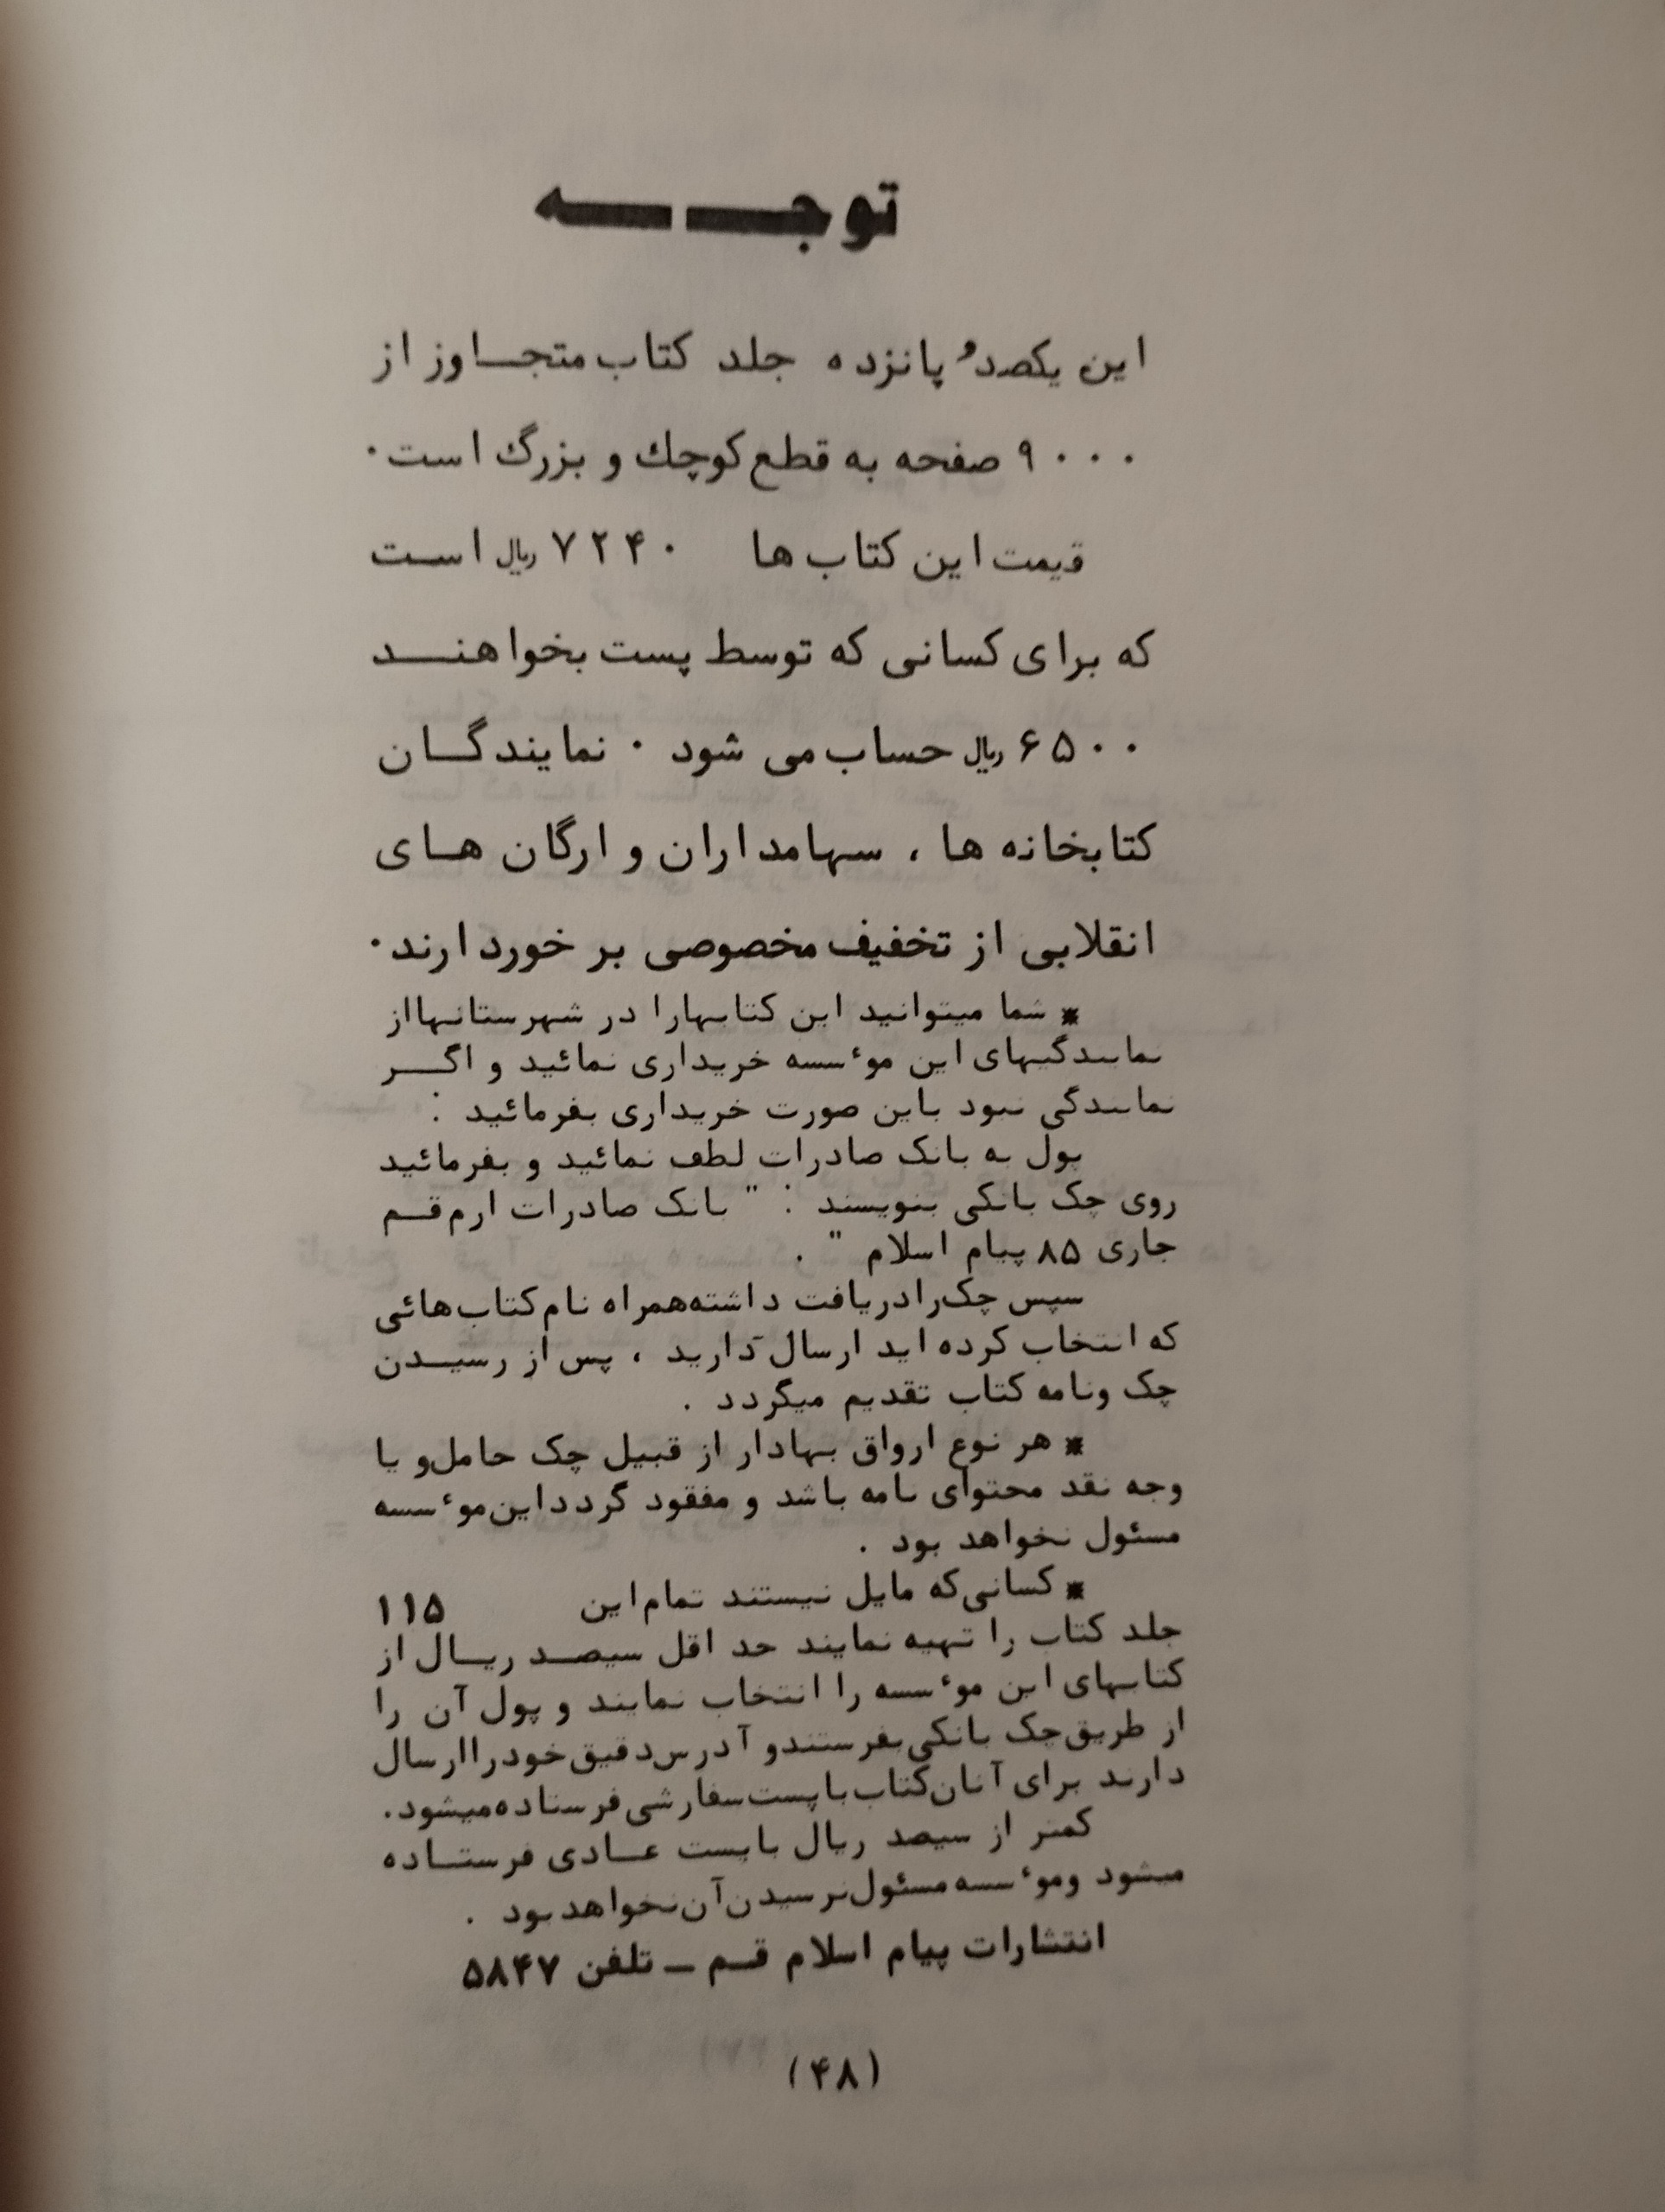 توجه
این یکصدو پانزده جلد کتاب متجاوز از
۹۰۰۰ صفحه به قطع کوچك و بزرگ است.
قیمت این کتاب ها ۷۲۴۰ ریال است
که برای کسانی که توسط پست بخواهند
۶۵۰۰ ریال حساب می شود. نمایندگان
کتابخانه ها، سهامداران و ارگان های
انقلابی از تخفیف مخصوصی بر خوردارند.
* شما میتوانید این کتابهارا در شهرستانهااز
نمایندگیهای این موءسسه خریداری نمائید و اگر
نمایندگی نبود باین صورت خریداری بفرمائید :
پول به بانک صادرات لطف نمائید و بفرمائید
روی چک بانکی بنویسند : " بانک صادرات ارم قم
جاری ۸۵ پیام اسلام " .
سپس چک را دریافت داشته همراه نام کتاب هائی
که انتخاب کرده اید ارسال دارید ، پس از رسیدن
چک ونامه کتاب تقدیم میگردد .
* هر نوع ارواق بهادار از قبیل چک حامل و یا
وجه نقد محتوای نامه باشد و مفقود گردد این موءسسه
مسئول نخواهد بود .
* کسانی که مایل نیستند تمام این ۱۱۵
جلد کتاب را تهیه نمایند حد اقل سیصد ریال از
کتابهای این موءسسه را انتخاب نمایند و پول آن را
از طریق چک بانکی بفرستند و آدرس دقیق خود را ارسال
دارند برای آنان کتاب با پست سفارشی فرستاده میشود.
کمتر از سیصد ریال با پست عادی فرستاده
میشود وموءسسه مسئول نرسیدن آن نخواهد بود .
انتشارات پیام اسلام قم ـ تلفن ۵۸۴۷
(۴۸)